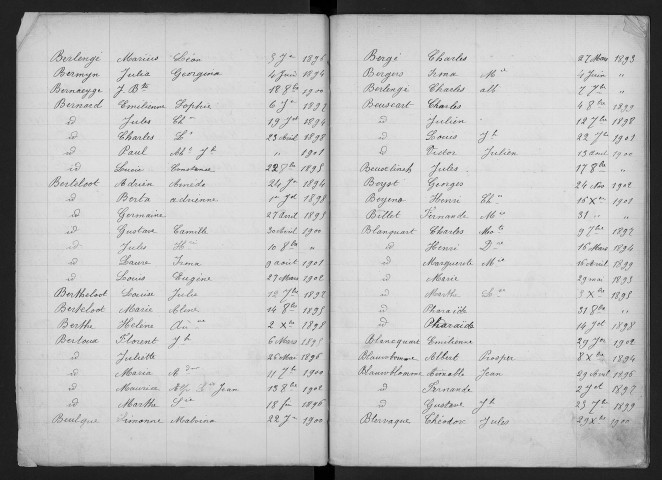 Berlengé Marius Léon 3 Jer 1896
Bermyn Julia Georgina 4 Juin 1894
Bernaeyge J. Bte 18 8bre 1900
Bernard Emilienne Sophie 6 Jer 1892
id Jules 19 Jet 1894
id Charles Ls 23 Avril 1898
id Paul Jh " 1901
id Louise Constance 22 8bre 1895
Berteloot Adrien 24 Jer 1894
id Berta adrienne 1er Jet 1898
id Germaine 27 avril 1898
id Gustave Camille 30 avril 1900
id Jules Hri 10 8bre "
id Laure Irma 9 aout 1901
id Louis Eugène 27 Mars 1902
Bertheloot Louise Julie 12 7bre 1892
Berteloot Marie 14 8bre 1895
Berthe Hélène 2 Xbre 1898
Bertoux Florent Jh 6 Mars 1895
id Juliette 26 Mai 1896
id Maria 11 Jet 1900
id Maurice Jean 13 8bre 1902
id Marthe 18 1896
Beulque Simonne Malvina 22 Jer 1900
Bergé Charles " 27 Mars 1893
Bergers Irma Mie 4 Juin "
Berlengé Charles alb 7 7bre "
Beuscart Charles 4 8bre 1899
id Julien 12 7bre 1898
id Louis Jh 22 7bre 1901
id Victor Julien 13 avril 1900
Beuselinck Jules 17 8bre "
Beyst Georges 24 Nov 1902
Beyens Henri 16 Xbre 1901
Billet Fernande Mie 31 " "
Blanquart Charles 9 7bre 1892
id Henri 16 Mars 1894
id Marguerite Mie 16 Avril 1899
id Marie 29 mai 1895
id Marthe 3 Xbre 1895
id Pharaïde 31 8bre "
id Pharaïde 14 Jet 1898
Blancquart Emilienne 29 Jer 1902
Blauwbomme Albert Prosper 8 Xbre 1894
Blauwblomme Aimable Jean 29 Avril 1896
id Fernande 2 Jet 1897
id Gustave Jh 23 7bre 1899
Blervaque Théodore Jules 29 Xbre 1900